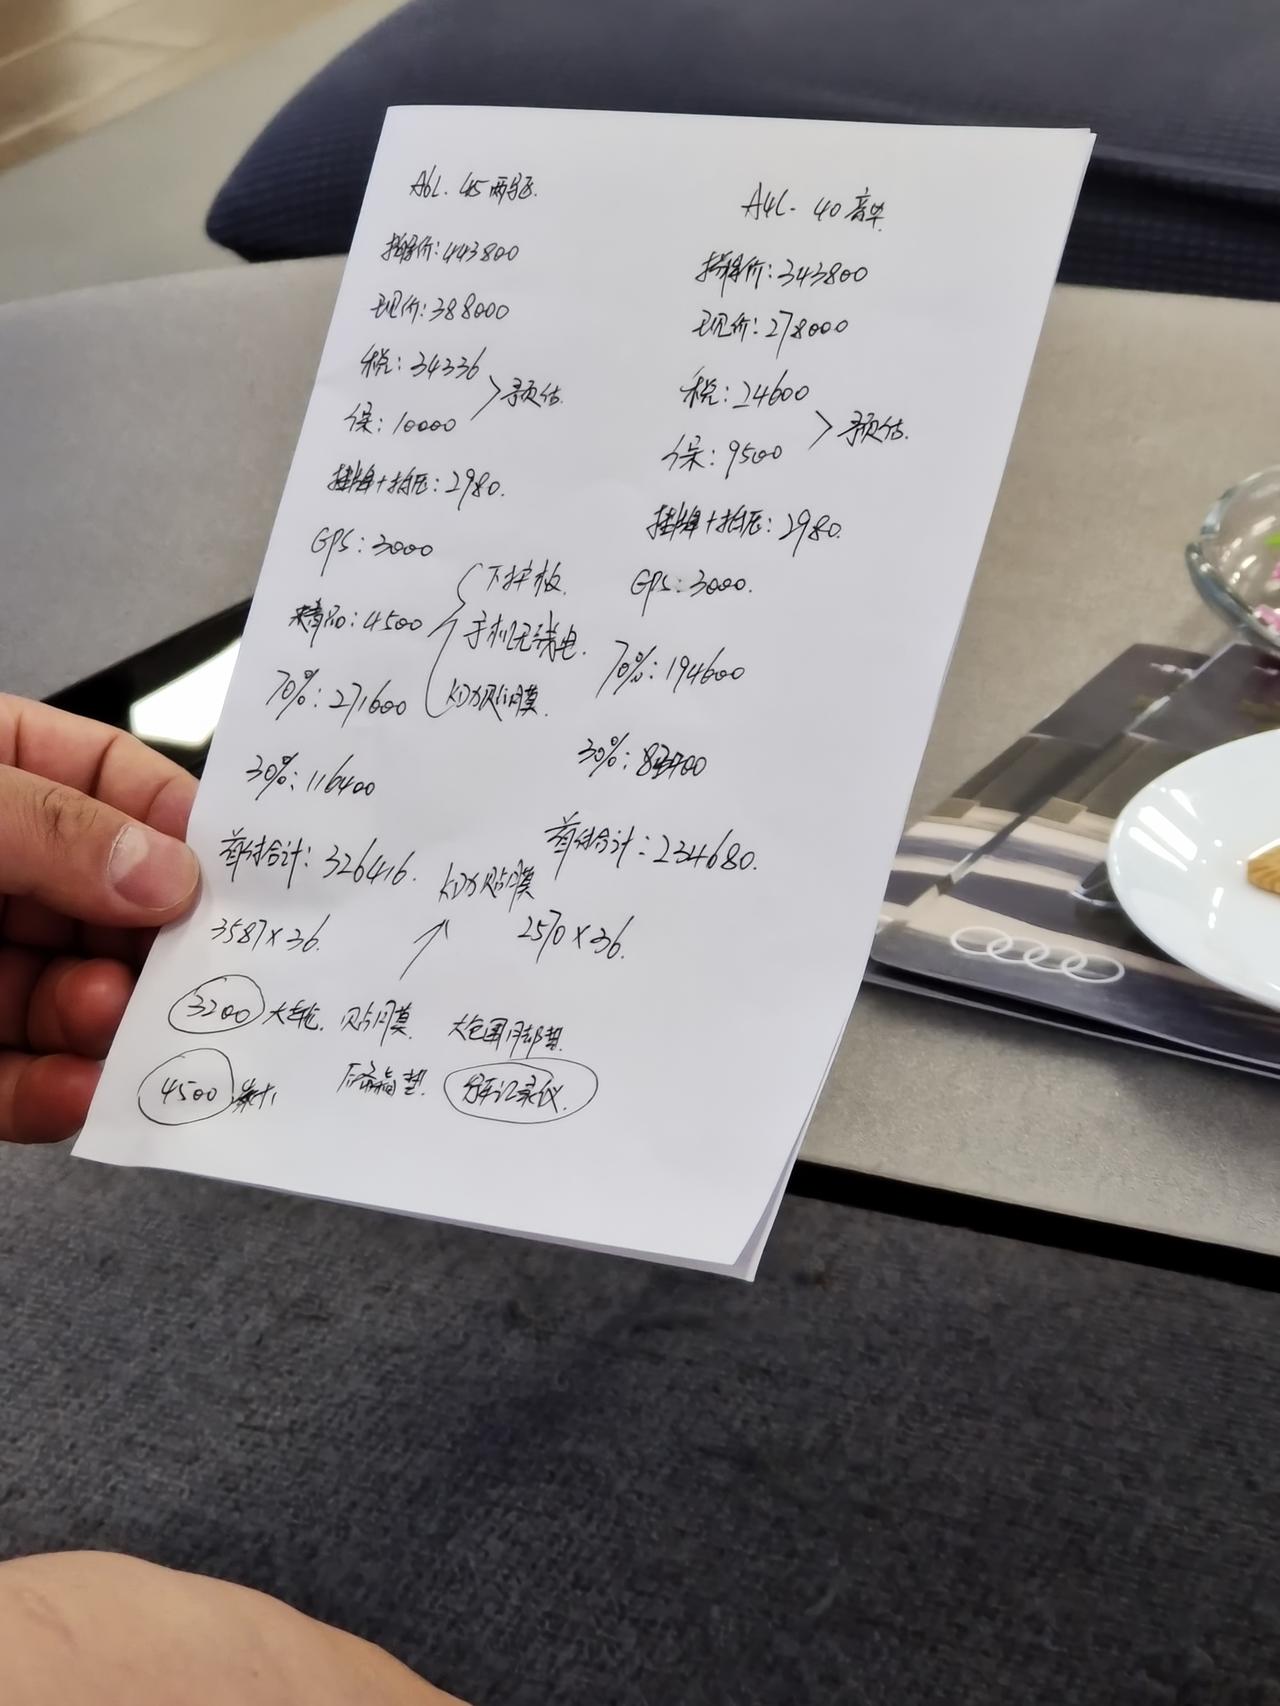 A6L. 45 两驱.
指导价: 443800
现价: 388000
税: 34336
保: 10000
预估.
挂牌+抵压: 2980.
GPS: 3000
精品: 4500
下护板.
手机无线电.
KD力贴膜.
70%: 271600
30%: 116400
首付合计: 326416.
3587×36.
A4L. 40 豪华.
指导价: 343800
现价: 278000
税: 24600
保: 9500
预估.
挂牌+抵压: 2980.
GPS: 3000.
70%: 194600
30%:
首付合计: 234680.
2570×36.
KD力贴膜
3200 贴膜. 大包围脚垫.
4500 后备箱垫. 行车记录仪.